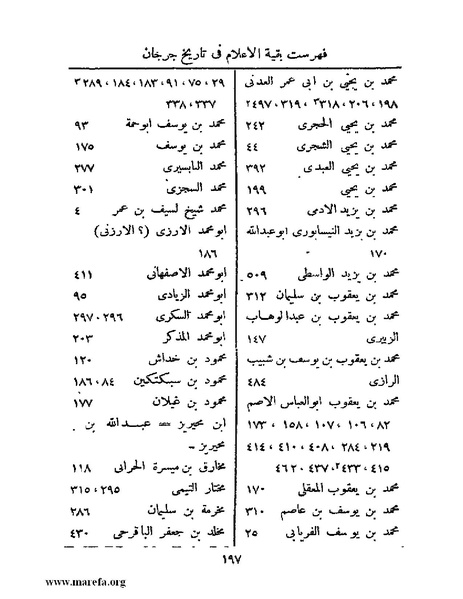 فهرست بقية الاعلام فى تاريخ جرجان
محمد بن يحيى بن ابى عمر العدنى
١٩٨ ، ٢٠٦ ، ٣١٨ ، ٣١٩ ، ٤٩٧
محمد بن يحيى الحجرى ٢٤٢
محمد بن يحيى الشجرى ٤٤
محمد بن يحيى العبدى ٣٩٢
محمد بن يحيى ١٩٩
محمد بن يزيد الادمى ٢٩٦
محمد بن يزيد النيسابورى ابوعبدالله
١٧٠
محمد بن يزيد الواسطى ٥٠٩
محمد بن يعقوب بن سليمان ٣١٢
محمد بن يعقوب بن عبدالوهاب
الزبيرى ١٤٧
محمد بن يعقوب بن يوسف بن شبيب
الرازى ٤٨٤
محمد بن يعقوب ابوالعباس الاصم
٨٢ ، ١٠٦ ، ١٠٧ ، ١٥٨ ، ١٧٣
٢١٩ ، ٢٨٤ ، ٤٠٨ ، ٤١٠ ، ٤١٤
٤١٥ ، ٤٣٣ ، ٤٣٧ ، ٤٦٢
محمد بن يعقوب المعقلى ١٧٠
محمد بن يوسف بن عاصم ٣١٠
محمد بن يوسف الفريابى ٢٥
٢٩ ، ٧٥ ، ٩١ ، ١٨٣ ، ١٨٤ ، ٢٨٩
٣٣٧ ، ٣٣٨
محمد بن يوسف ابوحمة ٩٣
محمد بن يوسف ١٧٥
محمد البابسيرى ٣٧٧
محمد السجزى ٣٠١
محمد شيخ لسيف بن عمر ٤
ابومحمد الارزى (؟ الارزنى)
١٨٦
ابومحمد الاصفهانى ٤١١
ابومحمد الزيادى ٩٥
ابومحمد السكرى ٢٩٦ ، ٢٩٧
ابومحمد المذكر ٢٠٣
محمود بن خداش ١٢٠
محمود بن سبكتكين ٨٤ ، ١٨٦
محمود بن غيلان ١٧٧
ابن محيريز = عبدالله بن
محيريز -
مخارق بن ميسرة الحرانى ١١٨
مختار التيمى ٢٩٥ ، ٣١٥
مخرمة بن سليمان ٢٨٦
مخلد بن جعفر الباقرحى ٤٣٠
١٩٧
www.marefa.org